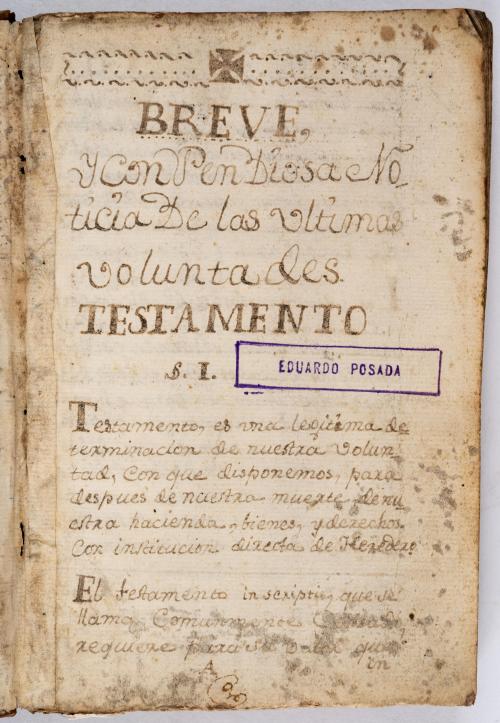 BREVE,
y Con Pen Diosa No-
ticia De las Vltimas
voluntades
TESTAMENTO
§. I.
EDUARDO POSADA
Testamento, es vna legitima de
terminacion de nuestra Volun
tad, Con que disponemos, para
despues de nuestra muerte, de nu
estra hacienda, bienes, y derechos
Con institucion directa de Heredero
El testamento inscriptis, que se
llama Comunmente
requiere para su valor que
A
in